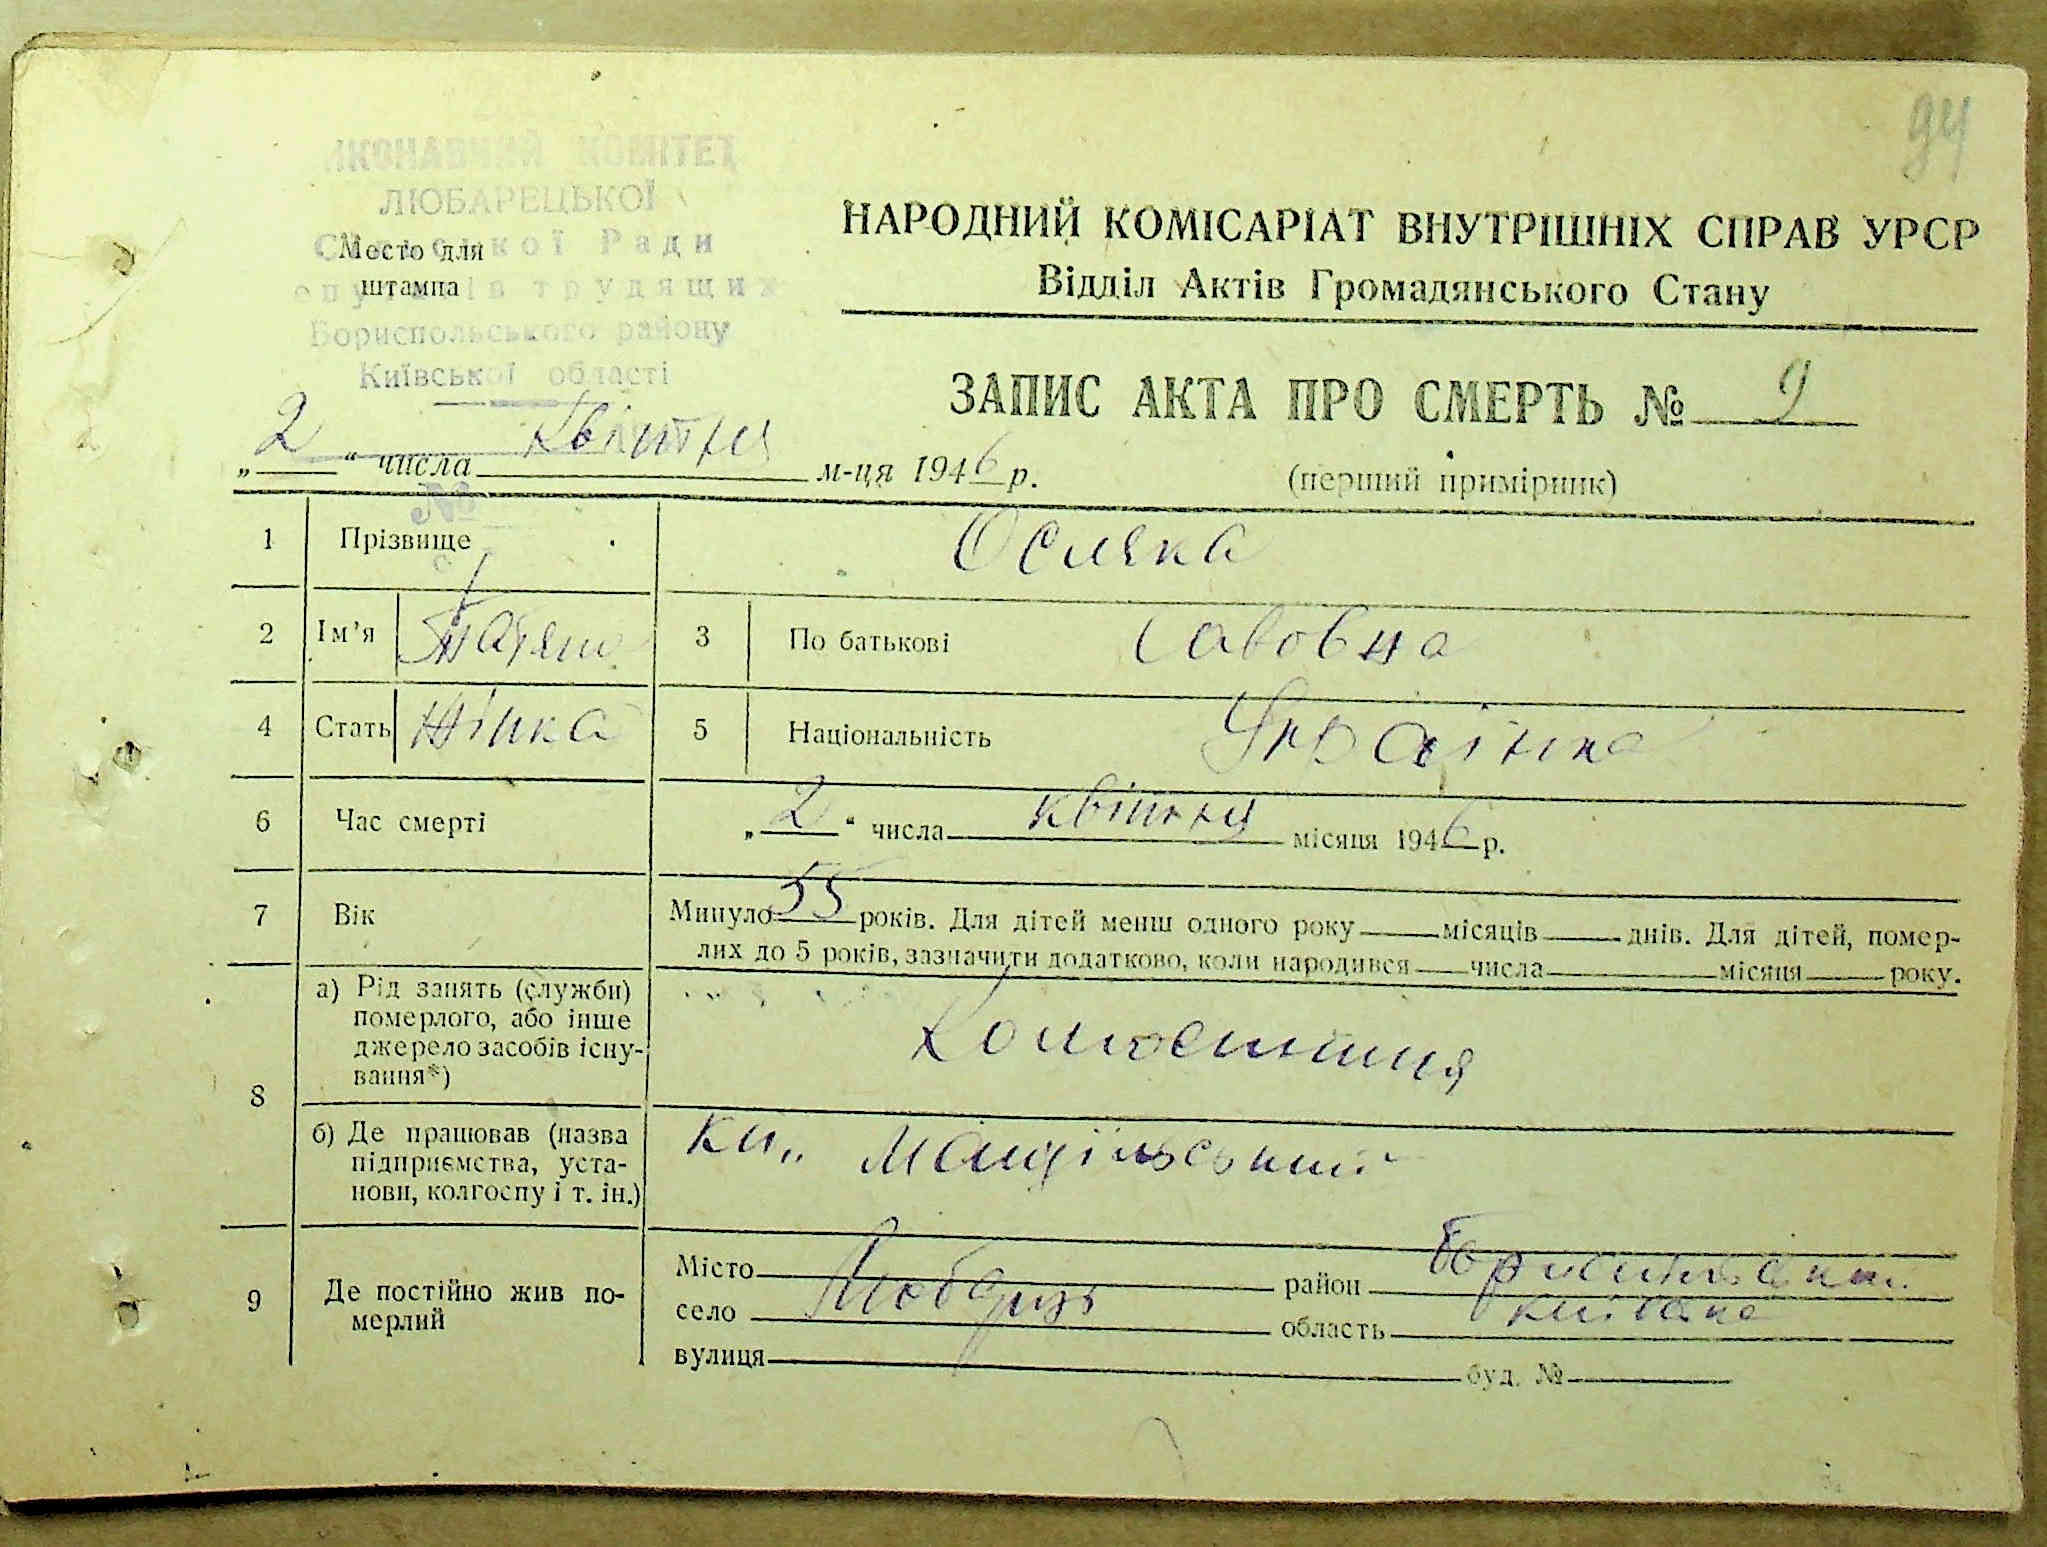 94
ВИКОНАВЧИЙ КОМІТЕТ
ЛЮБАРЕЦЬКОЇ
Сільської Ради
депутатів трудящих
Бориспольського району
Київської області
№
Место для
штампа
НАРОДНИЙ КОМІСАРІАТ ВНУТРІШНІХ СПРАВ УРСР
Відділ Актів Громадянського Стану
ЗАПИС АКТА ПРО СМЕРТЬ № 9
„2“ числа квітня м-ця 1946 р.
(перший примірник)
1 Прізвище Осмяка
2 Ім’я Татяна 3 По батькові Савовна
4 Стать Жінка 5 Національність Українка
6 Час смерті „2“ числа квітня місяця 1946 р.
7 Вік Минуло 55 років. Для дітей менш одного року місяців днів. Для дітей, помер-
лих до 5 років, зазначити додатково, коли народився числа місяця року.
8 а) Рід занять (служби)
померлого, або інше
джерело засобів існу-
вання*)
б) Де працював (назва
підприємства, уста-
нови, колгоспу і т. ін.)
9 Де постійно жив по-
мерлий
Місто район
село Любарць область Київська
вулиця буд. №